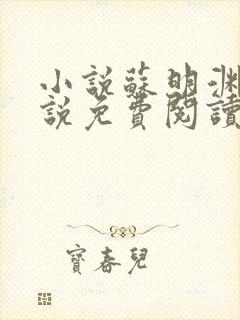 小說蘇明淵
說免費閱讀
寶春兒